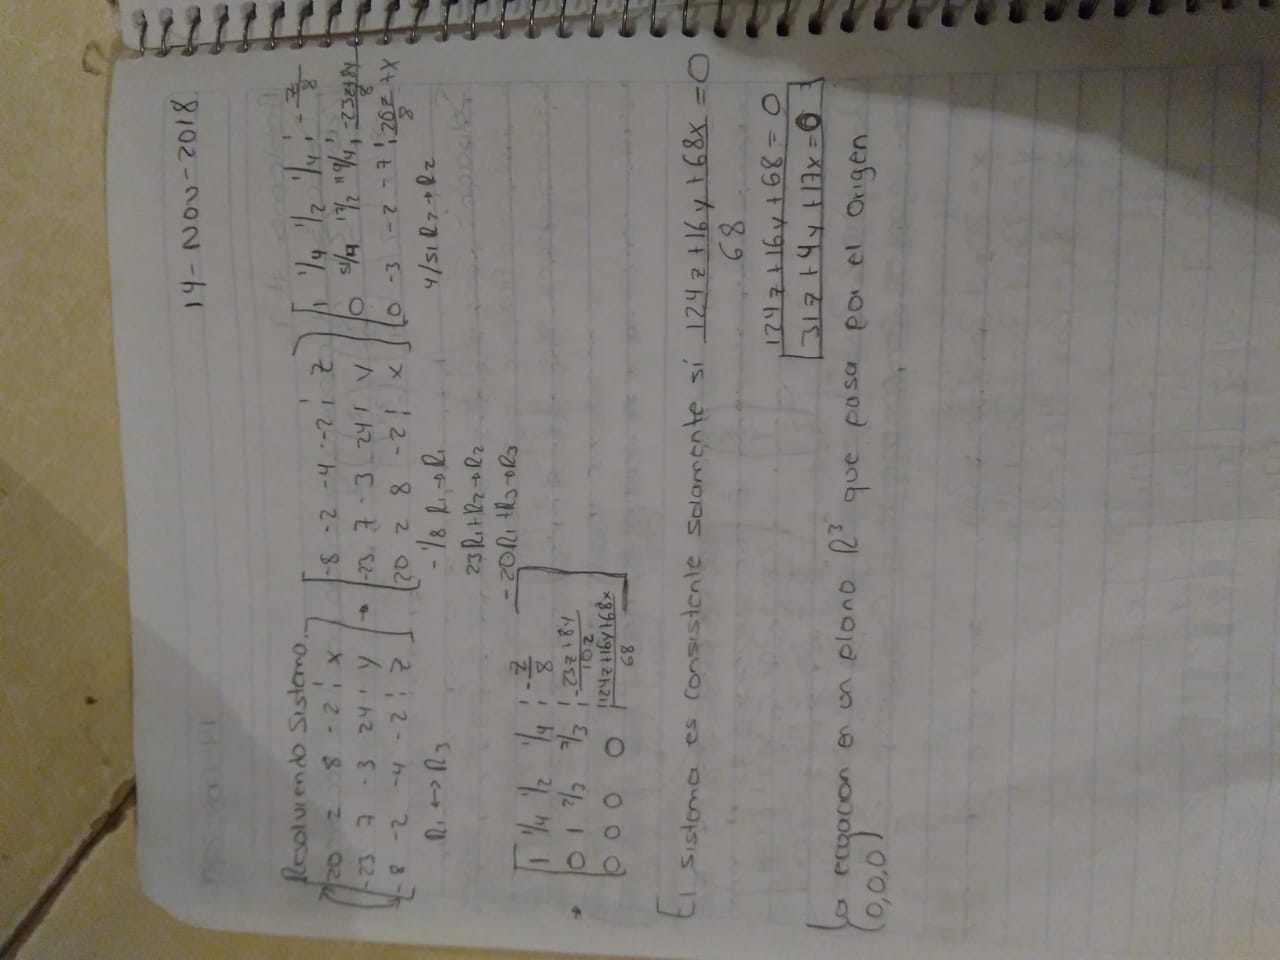 14-Nov-2018
Resolviendo Sistema.
[20 2 8 -2 | x] → [-8 -2 -4 -2 | z] [1 1/4 1/2 1/4 | -z/8]
[-23 7 -3 24 | y] [-23 7 -3 24 | y] [0 51/4 17/2 119/4 |
[-8 -2 -4 -2 | z] [20 2 8 -2 | x] [0 -3 -2 -7 | 20z/8 + x]
R1 ↔ R3 -1/8 R1→R1 4/51 R2→R2
23R1+R2→R2
-20R1+R3→R3
→ [1 1/4 1/2 1/4 | -z/8]
[0 1 2/3 7/3 | -23z+8y/102]
[0 0 0 0 | 124z+16y+68x/68]
El sistema es consistente solamente sí 124z+16y+68x/68 = 0
124z+16y+68=0
31z+4y+17x=0
La ecuacion en un plano R³ que pasa por el origen
(0,0,0)